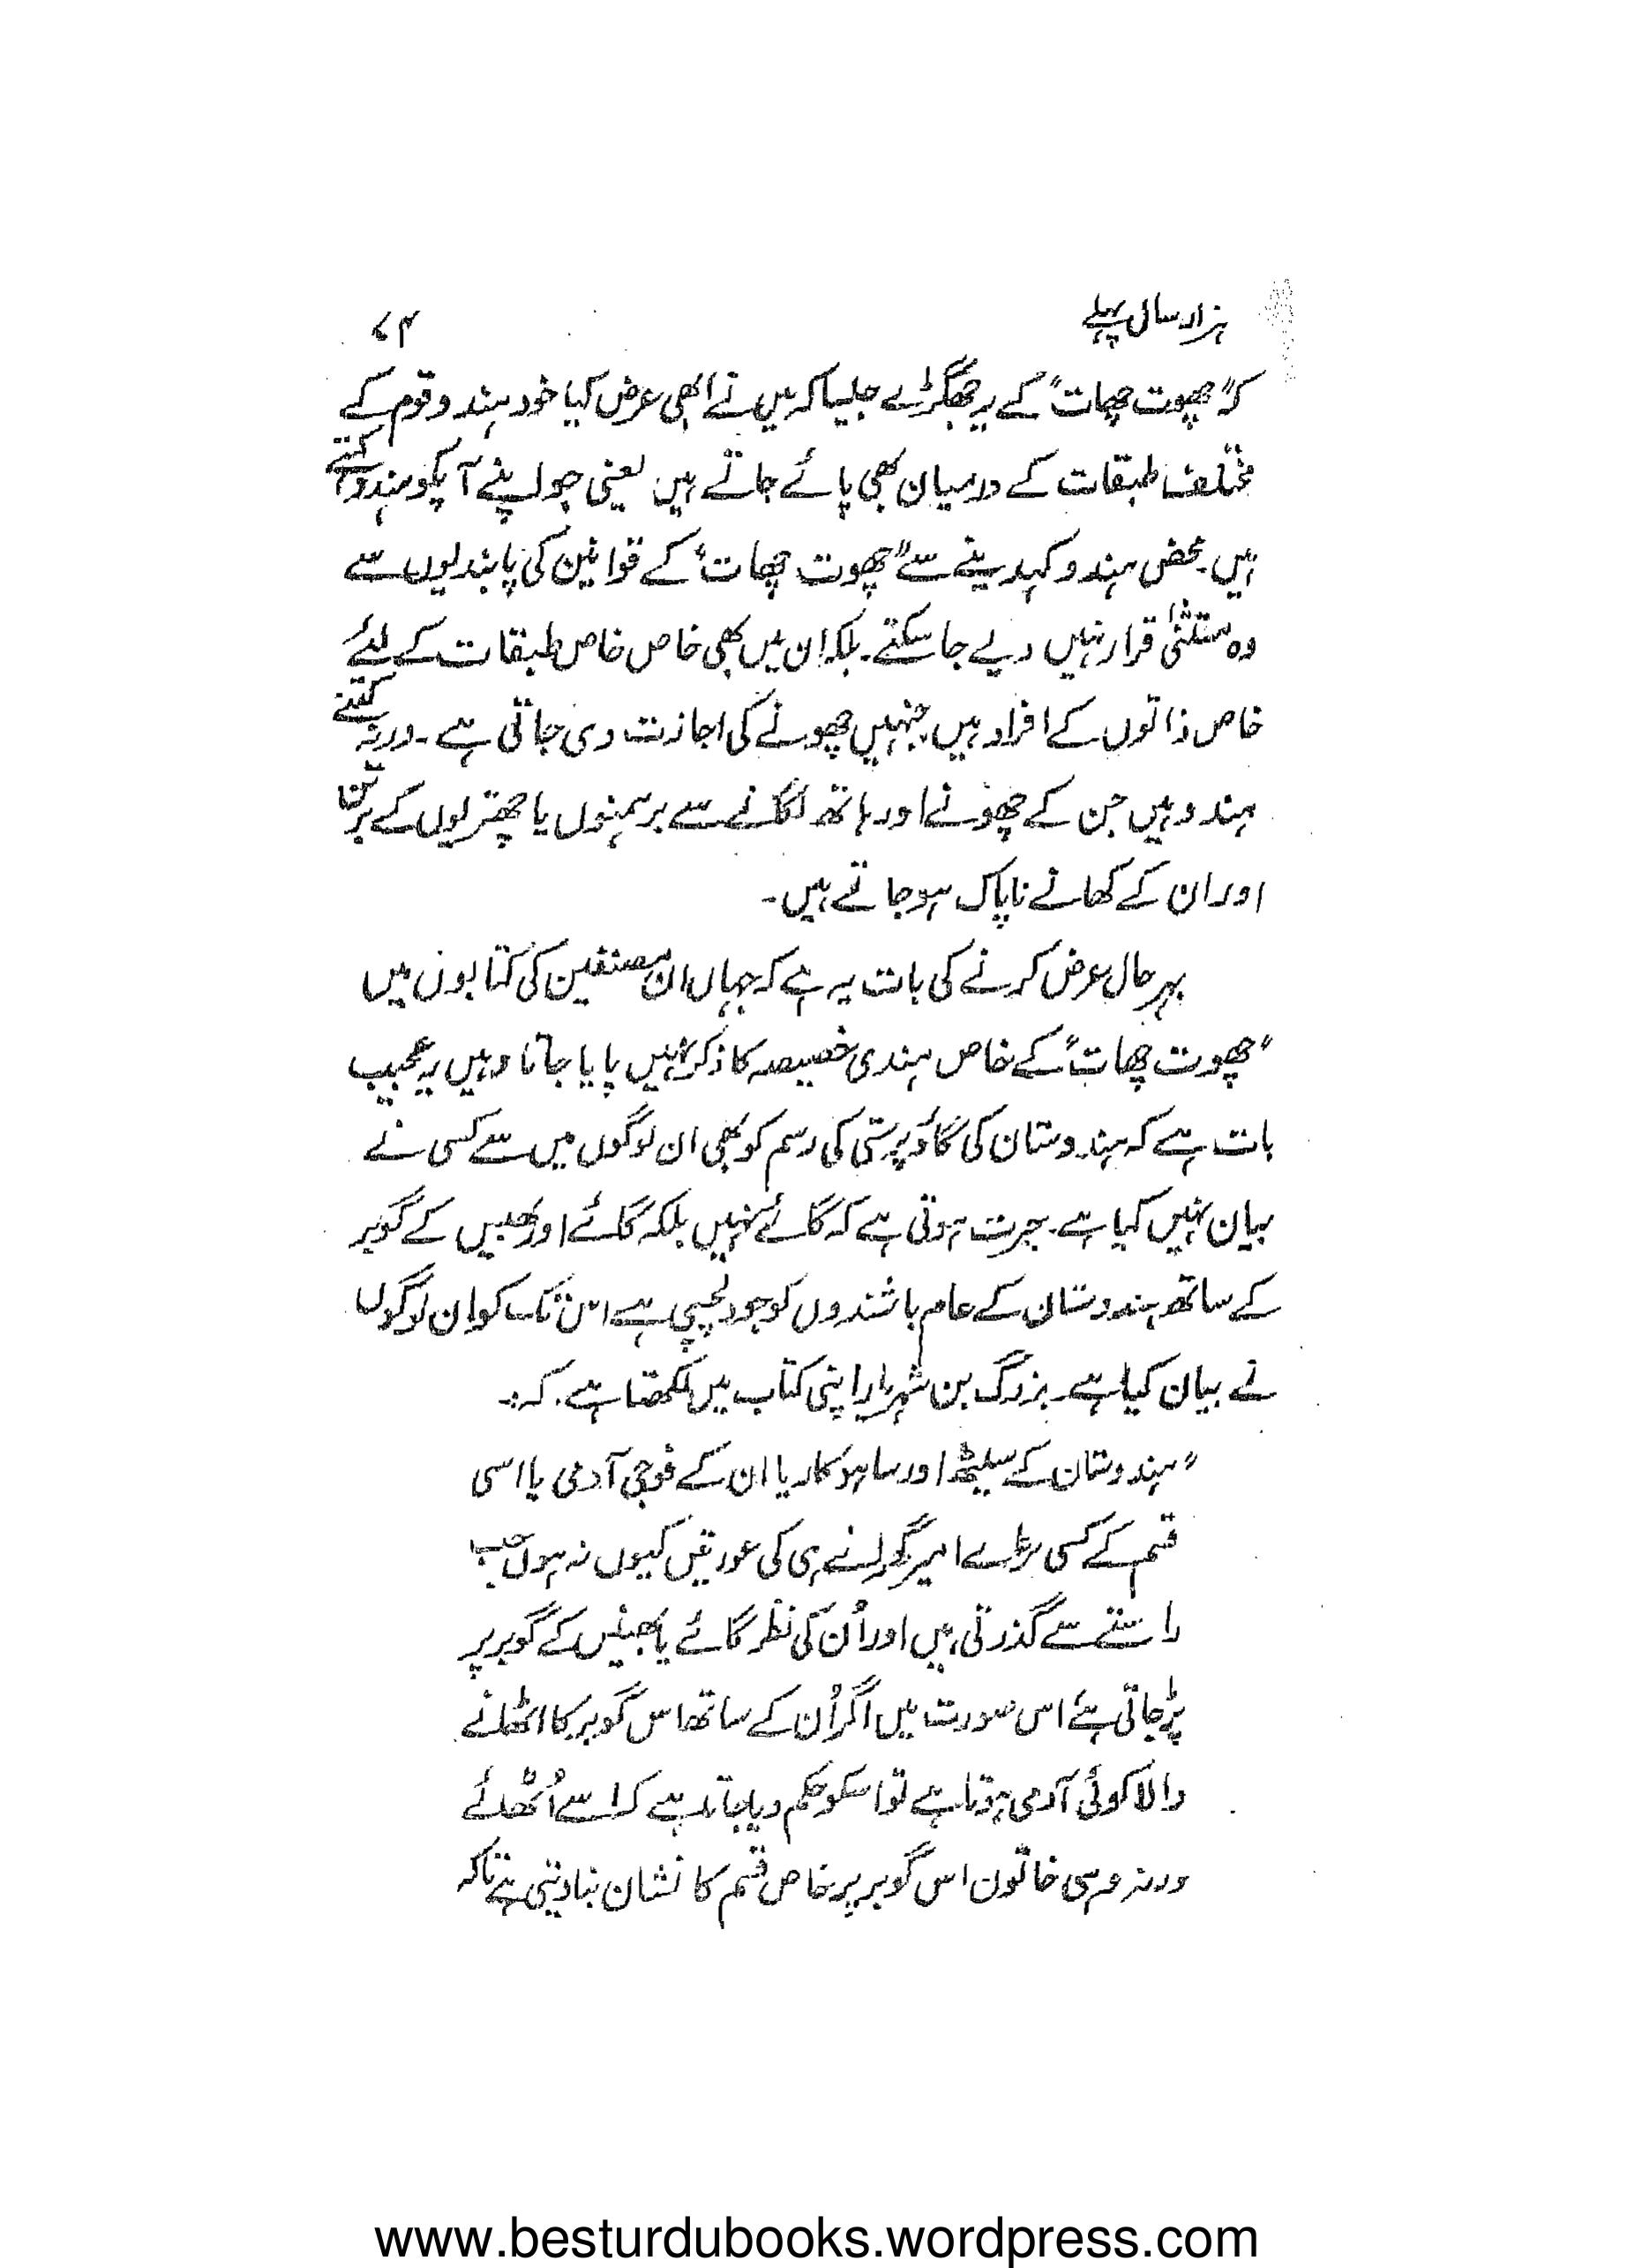 ہزار سال پہلے
۷۴
کہ "چھوت چھات" کے یہ جھگڑے جیسا کہ میں نے ابھی عرض کیا خود ہندو قوم کے
مختلف طبقات کے درمیان بھی پائے جاتے ہیں یعنی جو اپنے آپکو ہندو کہتے
ہیں۔ محض ہندو کہدینے سے "چھوت چھات" کے قوانین کی پابندیوں سے
وہ مستثنیٰ قرار نہیں دیے جا سکتے۔ بلکہ ان میں بھی خاص خاص طبقات کے لئے
خاص ذاتوں کے افراد ہیں جنہیں چھونے کی اجازت دی جاتی ہے۔ ورنہ کتنے
ہندو ہیں جن کے چھونے اور ہاتھ لگانے سے برہمنوں یا چھتریوں کے برتن
اور ان کے کھانے ناپاک ہو جاتے ہیں۔
بہر حال عرض کرنے کی بات یہ ہے کہ جہاں ان مصنفین کی کتابوں میں
"چھوت چھات" کے خاص ہندی خصیصہ کا ذکر نہیں پایا جاتا وہیں یہ عجیب
بات ہے کہ ہندوستان کی گاؤ پرستی کی رسم کو بھی ان لوگوں میں سے کسی نے
بیان نہیں کیا ہے۔ حیرت ہوتی ہے کہ گائے نہیں بلکہ گائے اور بھینس کے گوبر
کے ساتھ ہندوستان کے عام باشندوں کو جو دلچسپی ہے اس تک کو ان لوگوں
نے بیان کیا ہے۔ بزرگ بن شہریار اپنی کتاب میں لکھتا ہے۔ کہ:۔
"ہندوستان کے سیٹھ اور ساہوکار یا ان کے فوجی آدمی یا اسی
قسم کے کسی بڑے امیر گھرانے ہی کی عورتیں کیوں نہ ہوں جب
راستے سے گذرتی ہیں اور اُن کی نظر گائے یا بھینس کے گوبر پر
پڑ جاتی ہے اس صورت میں اگر اُن کے ساتھ اس گوبر کا اٹھانے
والا کوئی آدمی ہوتا ہے تو اسکو حکم دیا جاتا ہے کہ اسے اُٹھالے
ورنہ وہی خاتون اس گوبر پر خاص قسم کا نشان بنا دیتی ہے تاکہ
www.besturdubooks.wordpress.com